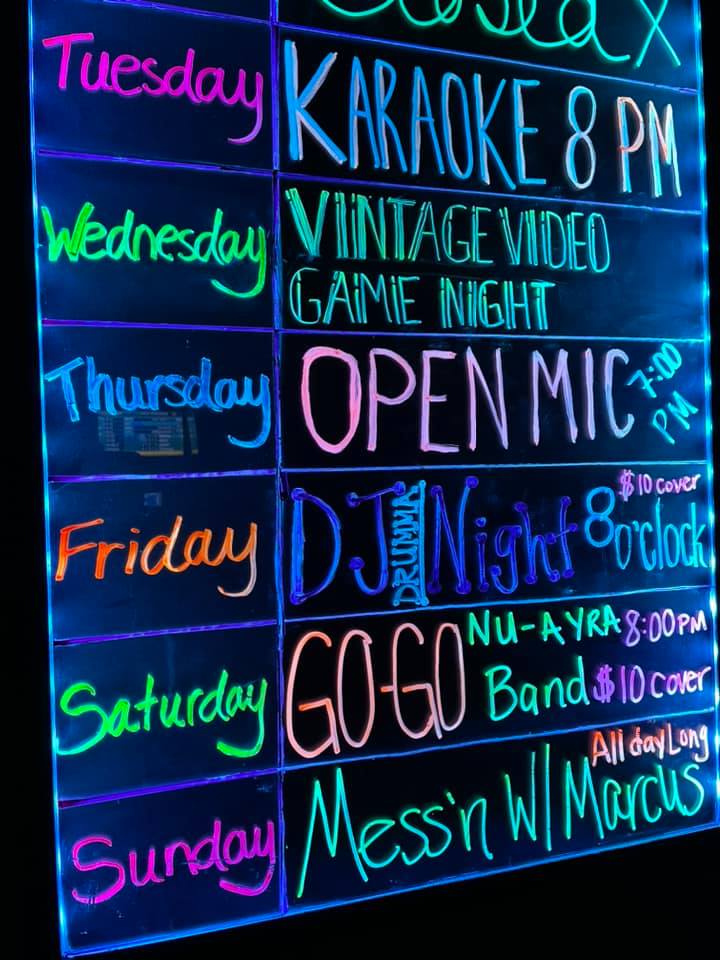 Closed X
Tuesday
KARAOKE 8 PM
Wednesday
VINTAGE VIDEO
GAME NIGHT
Thursday
OPEN MIC
7:00
PM
Friday
DJ
DRUMMA
Night
$10 cover
8 o'clock
Saturday
GO-GO
NU-AYRA 8:00PM
Band $10 cover
Sunday
All day Long
Mess'n W/ Marcus